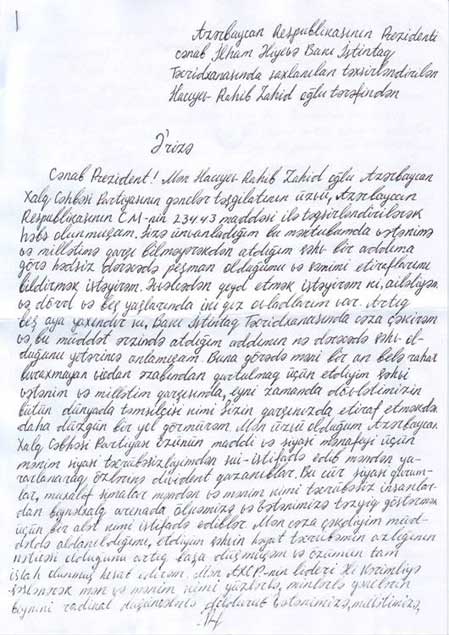 Azərbaycan Respublikasının Prezidenti
cənab İlham Əliyevə Bakı İstintaq
Təcridxanasında saxlanılan təqsirləndirilən
Hacıyev Rahib Zahid oğlu tərəfindən
Ərizə
Cənab Prezident! Mən Hacıyev Rahib Zahid oğlu Azərbaycan
Xalq Cəbhəsi Partiyasının gənclər təşgilatının üzvü, Azərbaycan
Respublikasının CM-nin 234.4.3 maddəsi ilə təqsirləndirilərək
həbs olunmuşam. Sizə ünvanladığım bu məktubumda vətənimə
və millətimə qarşı bilməyərəkdən atdığım səhv bir addıma
görə hədsiz dərəcədə peşman olduğumu və səmimi etiraflarımı
bildirmək istəyirəm. Əvvəlcədən qeyd etmək istəyirəm ki, ailəliyəm
və dörd və beş yaşlarında iki qız övladlarım var. Artıq
beş aya yaxındır ki, Bakı İstintaq Təcridxanasında cəza çəkirəm
və bu müddət ərzində atdığım addımın nə dərəcədə səhv ol-
duğunu yetərincə anlamışam. Buna görədə məni bir an belə rahat
buraxmayan vicdan əzabından qurtulmaq üçün etdiyim səhvi
vətənim və millətim qarşısında, eyni zamanda dövlətimizin
bütün dünyada təmsilçisi kimi Sizin qarşınızda etiraf etməkdən
daha düzgün bir yol görmürəm. Mən üzvü olduğum Azərbaycan
Xalq Cəbhəsi Partiyası özünün maddi və siyasi mənafeyi üçün
mənim siyasi təcrübəsizliyimdən sui-istifadə edib məndən ya-
rarlanaraq özlərinə divident qazanıblar. Bu cür siyasi qurum-
lar, müxalif simalar məndən və mənim kimi təcrübəsiz insanlar-
dan beynəlxalq arenada ölkəmizə və vətənimizə təzyiq göstərmək
üçün bir alət kimi istifadə ediblər. Mən cəza çəkdiyim müd-
dətdə aldanıldığımı, etdiyim səhvin həyat təcrübəmin azlığının
nəticəsi olduğunu artıq başa düşmüşəm və özümün tam
islah olunmuş hesab edirəm. Mən AXCP-nin lideri Əli Kərimliyə
əsaslanaraq mən və mənim kimi yüzlərlə, minlərlə gənclərin
beynini radikal düşüncələrlə doldurub vətənimizə, millətimizə,